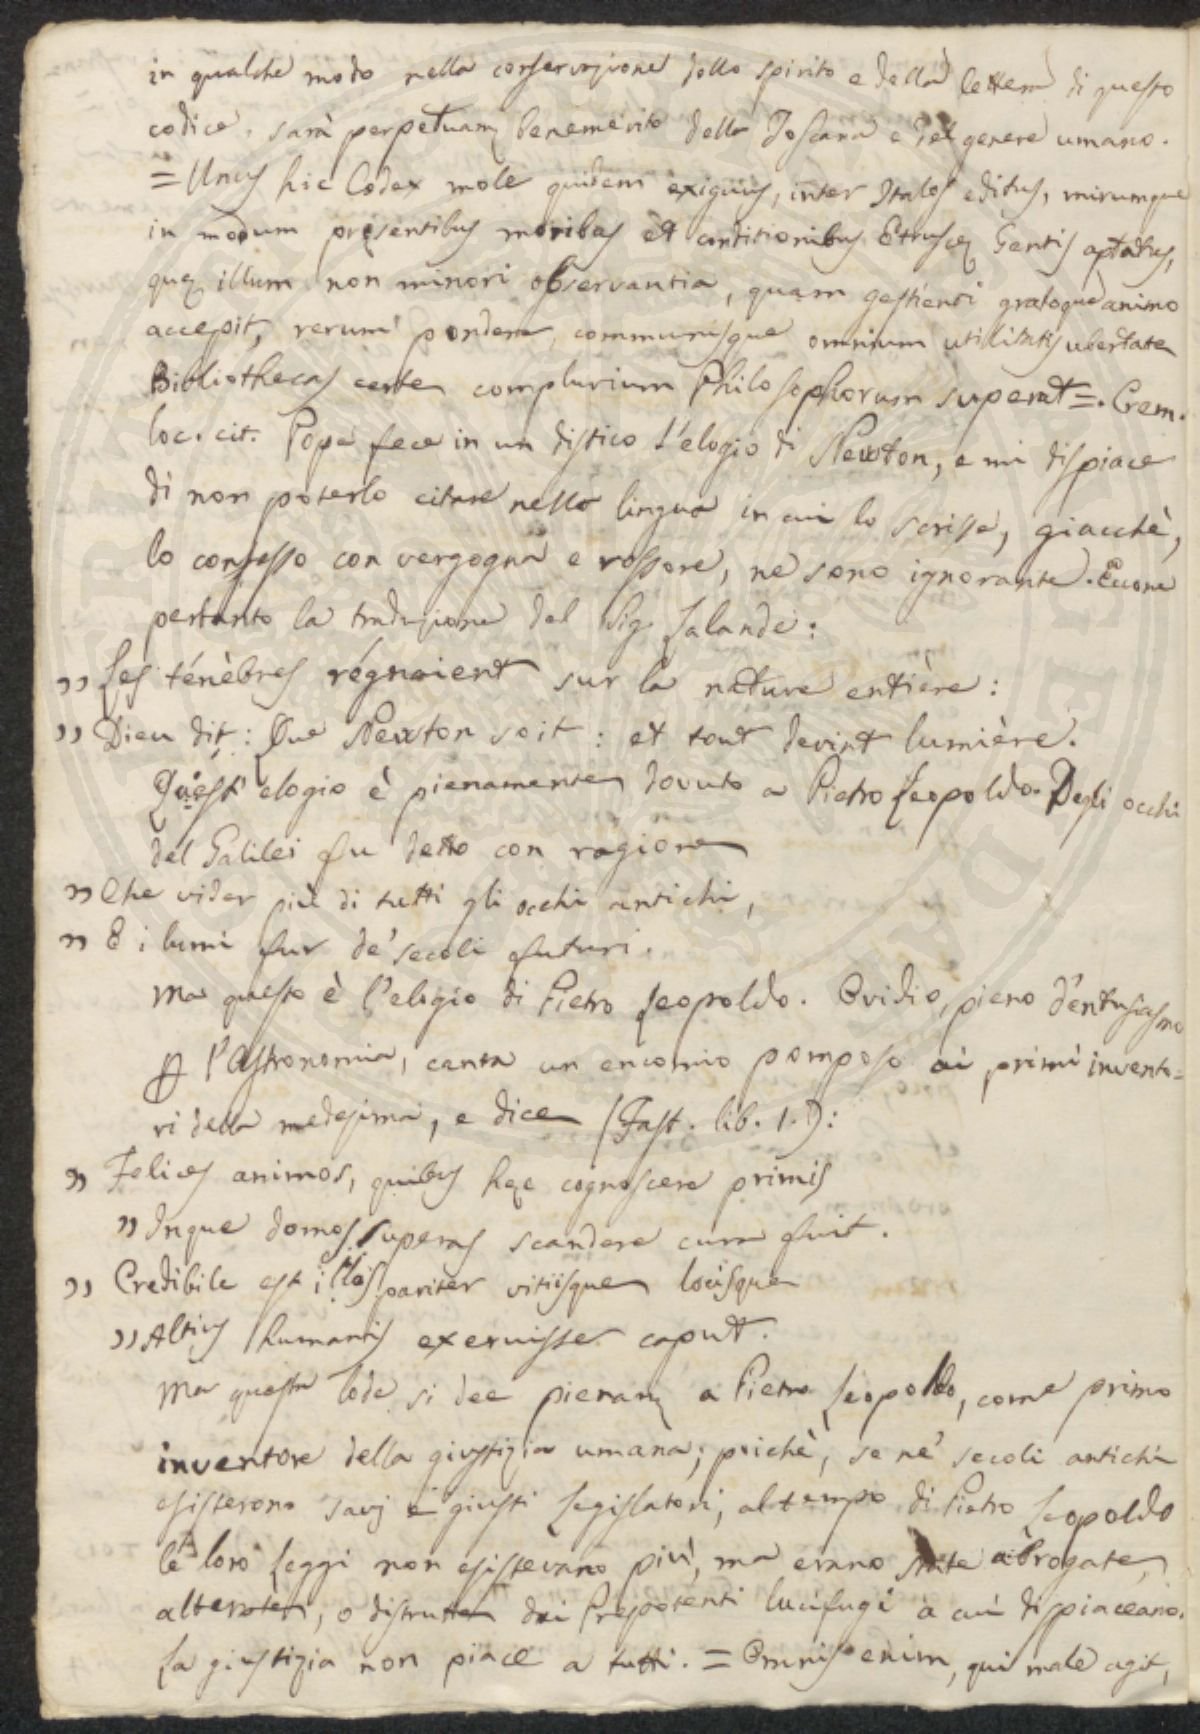 in qualche modo nella conservazione dello spirito e della lettera di questo
codice, sarà perpetuam. benemerito della Toscana e del genere umano.
= Unus hic Codex mole quidem exiguus, inter Italos editus, mirumque
in modum pręsentibus moribus et conditionibus Etruscę Gentis aptatus,
quę illum non minori observantia, quam gestienti gratoque animo
accepit, rerum pondere, communisque omnium utilitatis ubertate
Bibliothecas certe complurium Philosophorum superat =. Crem.
loc. cit. Pope fece in un distico l'elogio di Newton, e mi dispiace
di non poterlo citare nella lingua in cui lo scrisse, giacchè,
lo confesso con vergogna e rossore, ne sono ignorante. Eccone
pertanto la traduzione del Sig. Lalande:
„ Les ténèbres régnoient sur la nature entière:
„ Dieu dit: Que Newton soit: et tout devint lumière.
Quest' elogio è pienamente dovuto a Pietro Leopoldo. Degli occhi
del Galilei fu detto con ragione
„ Che vider più di tutti gli occhi antichi,
„ E i lumi fur de' secoli futuri.
Ma questo è l'elogio di Pietro Leopoldo. Ovidio, pieno d'entusiasmo
p l'Astronomia, canta un encomio pomposo ai primi invento=
ri della medesima, e dice (Fast. lib. 1.):
„ Felices animos, quibus hęc cognoscere primis
„ Inque domos superas scandere cura fuit.
„ Credibile est illos pariter vitiisque locisque
„ Altius humanis exeruisse caput.
Ma questa lode si dee pienam. a Pietro Leopoldo, come primo
inventore della giustizia umana; poichè, se ne' secoli antichi
esisterono savj e giusti Legislatori, al tempo di Pietro Leopoldo
le loro Leggi non esistevano più, ma erano state abrogate,
alterate, o distrutte dai Prepotenti lucifugi a cui dispiaceano.
La giustizia non piace a tutti. = Omnis enim, qui male agit,